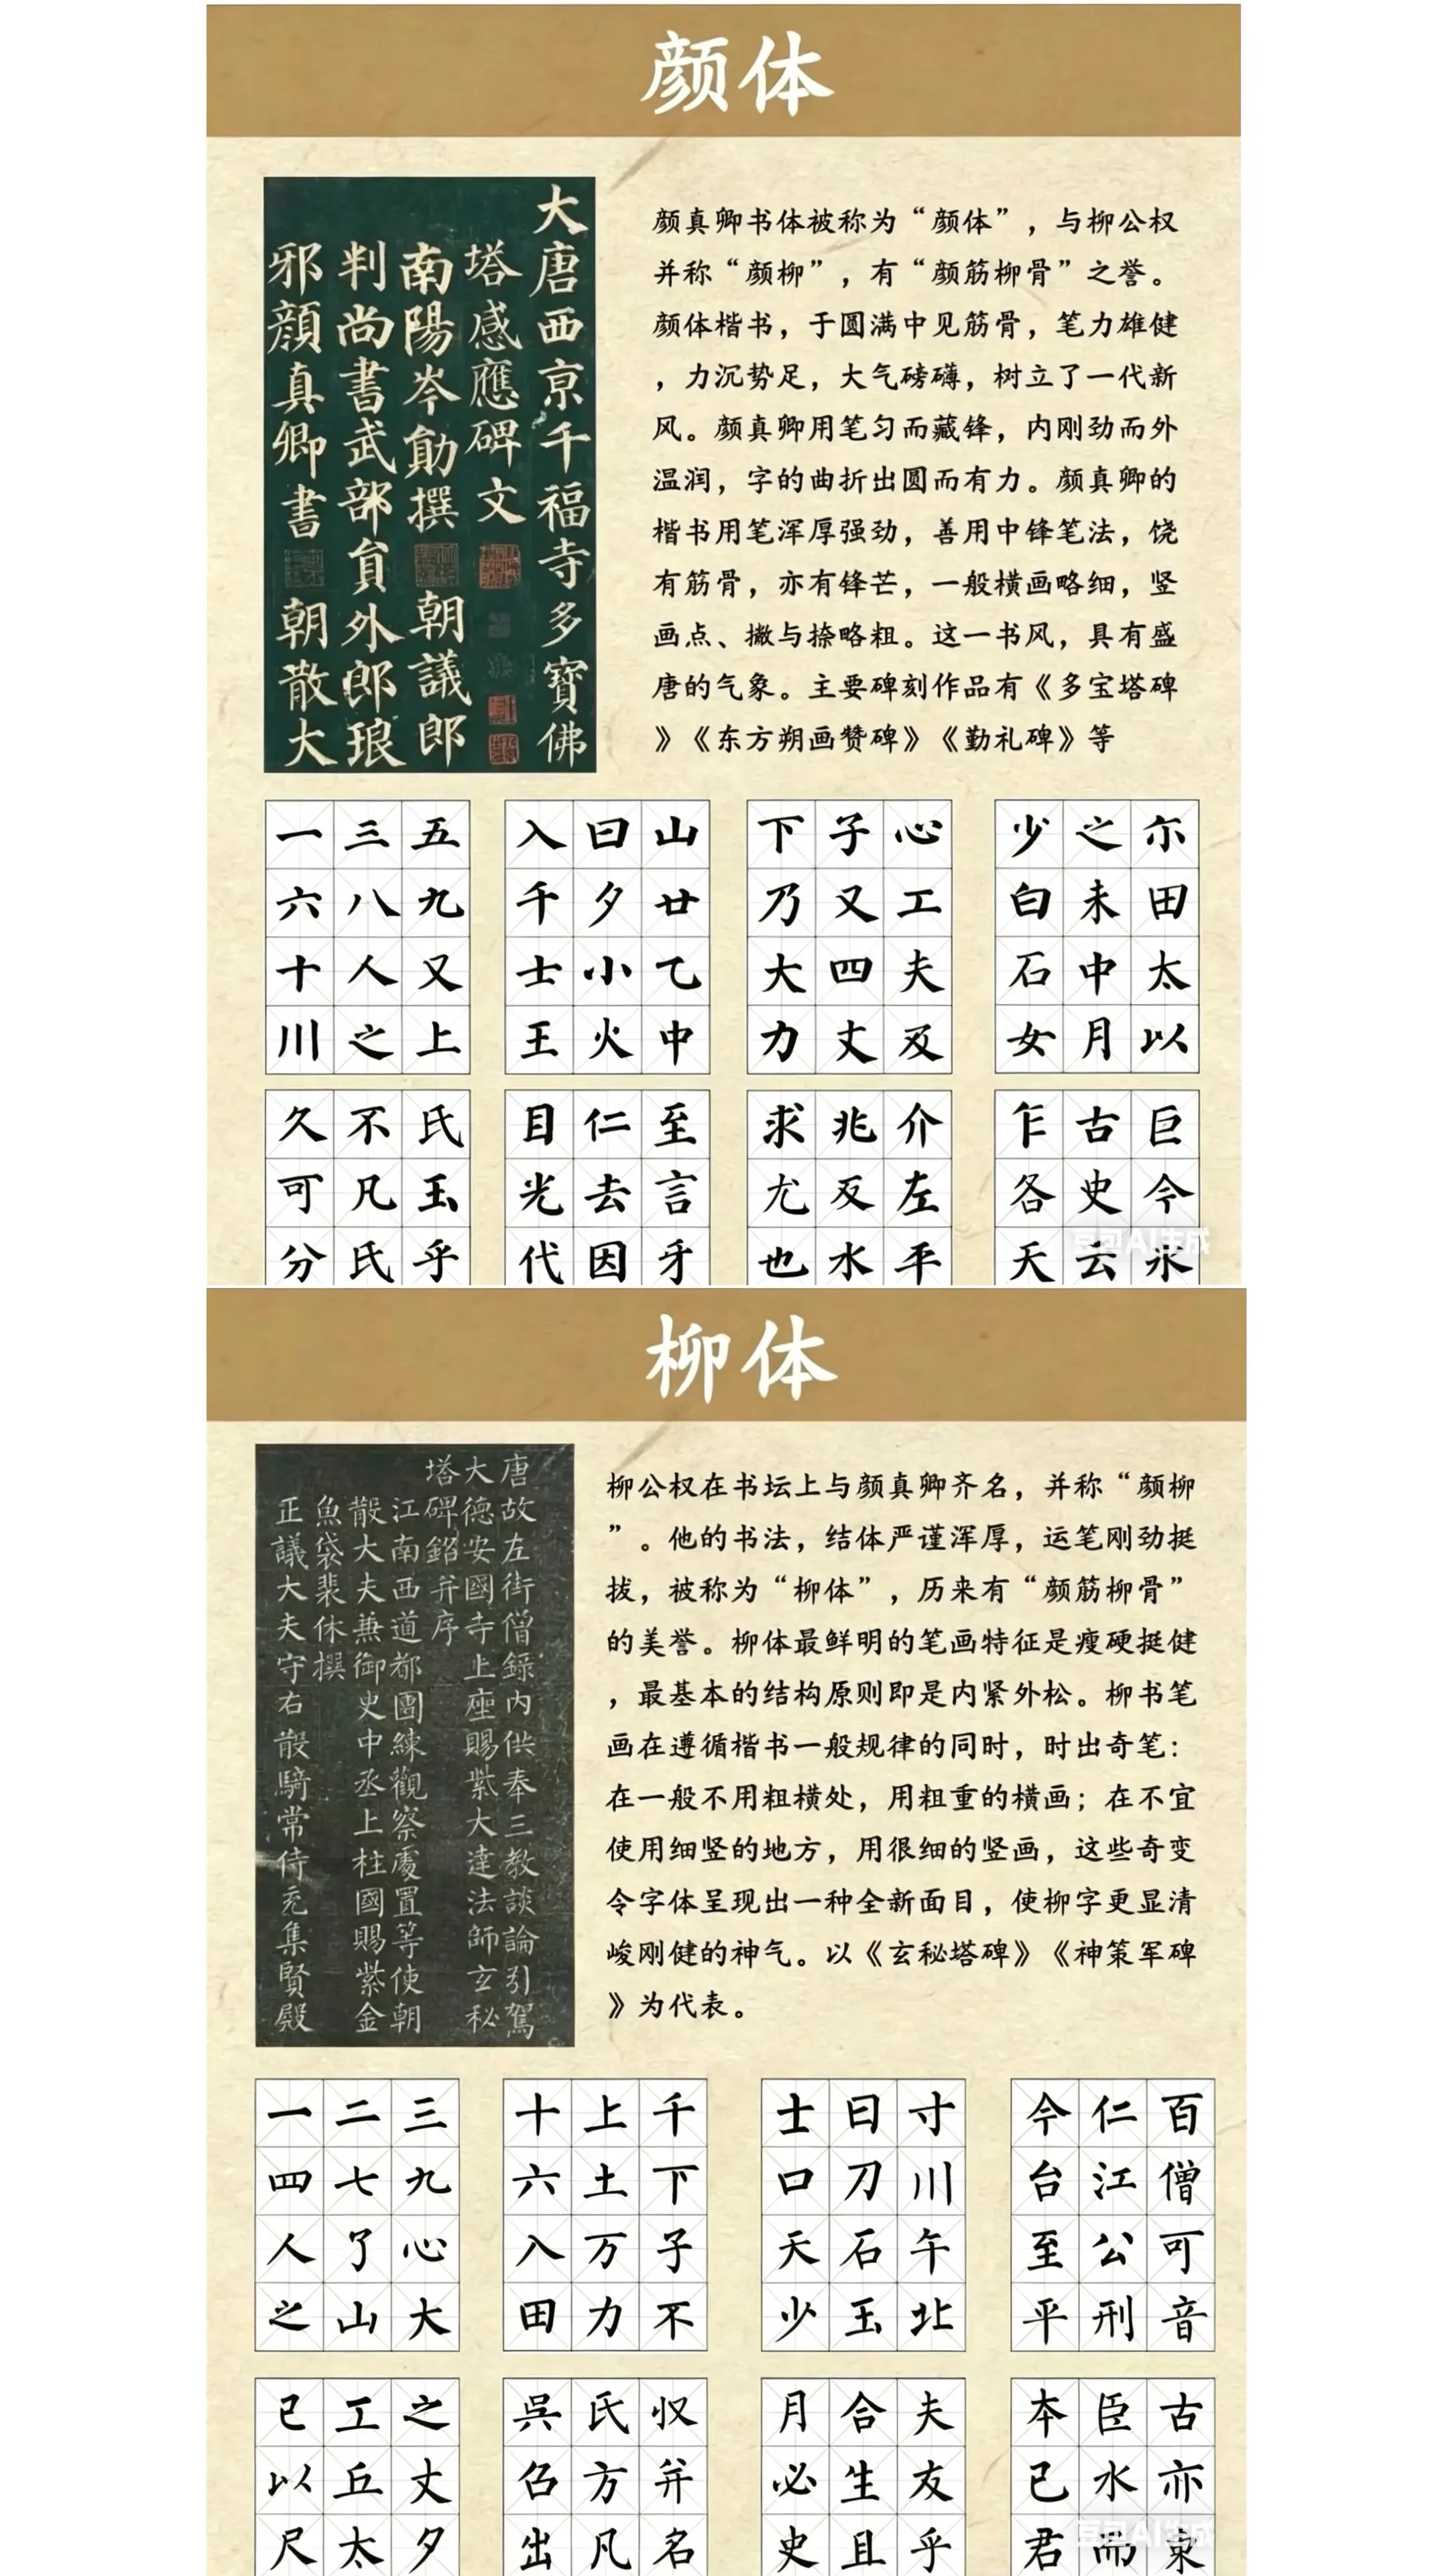 颜体
大唐西京千福寺多寶佛
塔感應碑文
南陽岑勛撰 朝議郎
判尚書武部貟外郎琅
邪顏真卿書 朝散大
颜真卿书体被称为“颜体”，与柳公权
并称“颜柳”，有“颜筋柳骨”之誉。
颜体楷书，于圆满中见筋骨，笔力雄健
，力沉势足，大气磅礴，树立了一代新
风。颜真卿用笔匀而藏锋，内刚劲而外
温润，字的曲折出圆而有力。颜真卿的
楷书用笔浑厚强劲，善用中锋笔法，饶
有筋骨，亦有锋芒，一般横画略细，竖
画点、撇与捺略粗。这一书风，具有盛
唐的气象。主要碑刻作品有《多宝塔碑
》《东方朔画赞碑》《勤礼碑》等
一三五 入曰山 下子心 少之尓
六八九 千夕廿 乃又工 白未田
十人又 士小乙 大四夫 石中太
川之上 王火中 力丈及 女月以
久不氏 目仁至 求兆介 乍古巨
可凡玉 光去言 尤反左 各史今
分氏乎 代因牙 也水平 天云永
豆包AI生成
柳体
唐故左街僧録内供奉三教談論引駕
大德安國寺上座賜紫大達法師玄秘
塔碑銘并序
江南西道都團練觀察處置等使朝
散大夫兼御史中丞上柱國賜紫金
魚袋裴休撰
正議大夫守右散騎常侍充集賢殿
柳公权在书坛上与颜真卿齐名，并称“颜柳
”。他的书法，结体严谨浑厚，运笔刚劲挺
拔，被称为“柳体”，历来有“颜筋柳骨”
的美誉。柳体最鲜明的笔画特征是瘦硬挺健
，最基本的结构原则即是内紧外松。柳书笔
画在遵循楷书一般规律的同时，时出奇笔：
在一般不用粗横处，用粗重的横画；在不宜
使用细竖的地方，用很细的竖画，这些奇变
令字体呈现出一种全新面目，使柳字更显清
峻刚健的神气。以《玄秘塔碑》《神策军碑
》为代表。
一二三 十上千 士日寸 今仁百
四七九 六土下 口刀川 台江僧
人了心 入万子 天石午 至公可
之山大 田力不 少玉北 平刑音
已工之 吳氏収 月合夫 本臣古
以丘丈 召方并 必生友 己水亦
尺太夕 出凡名 史且乎 君而東
豆包AI生成